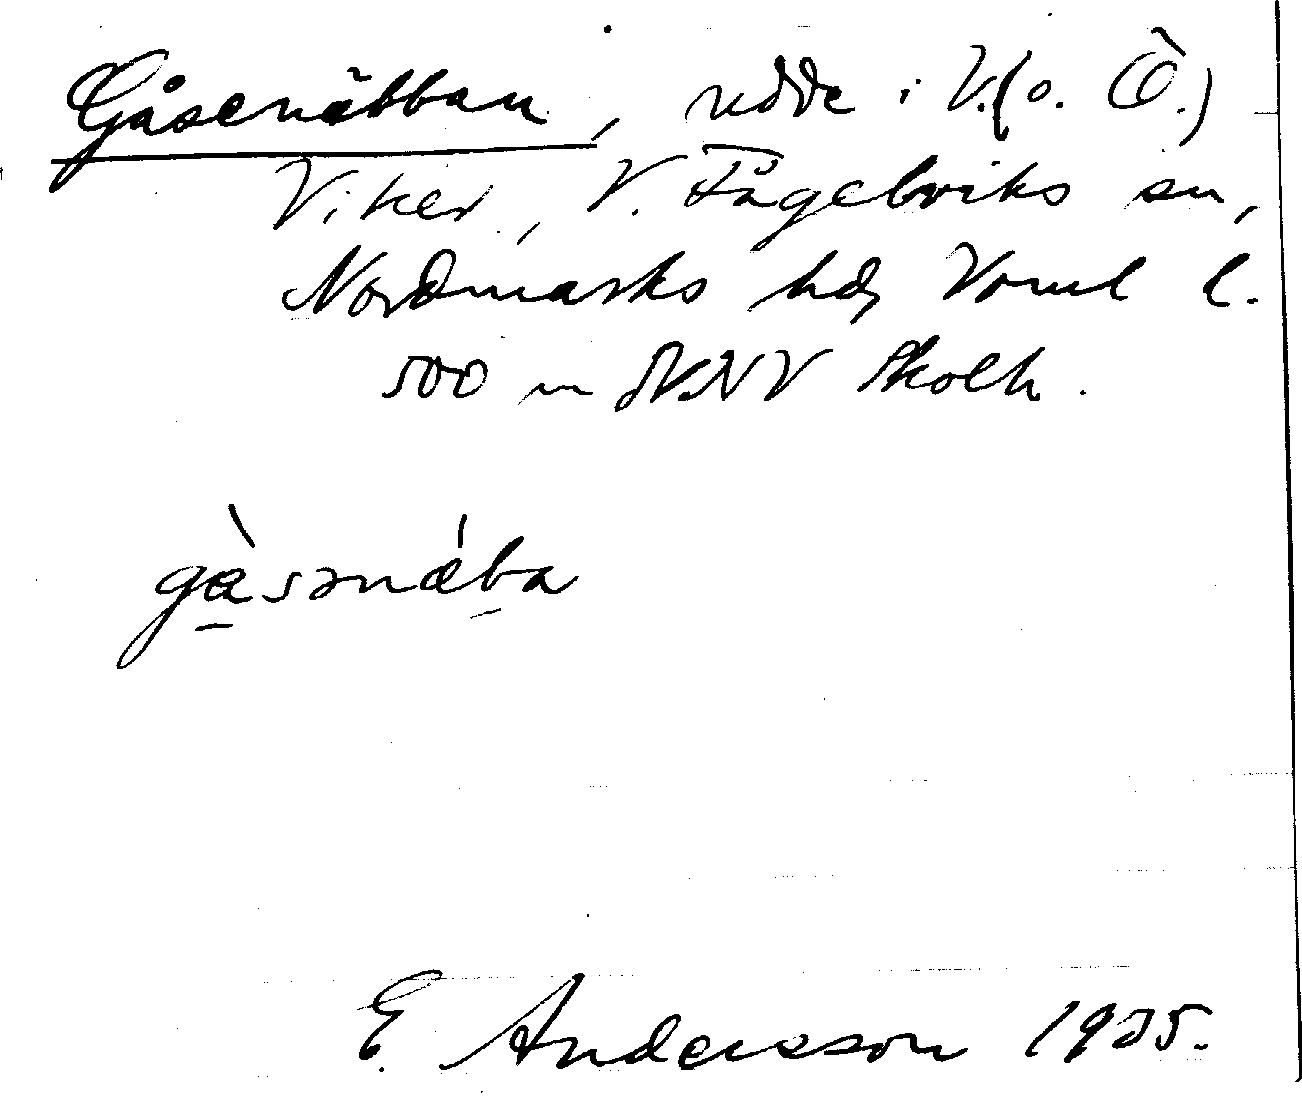 Gåsenäbban, udde i V. (o. Ö.)
Viker, V. Fågelviks sn,
Nordmarks hd, Vrml l.
500 m NNV Skolh.
gåsənäba
E. Andersson 1925.